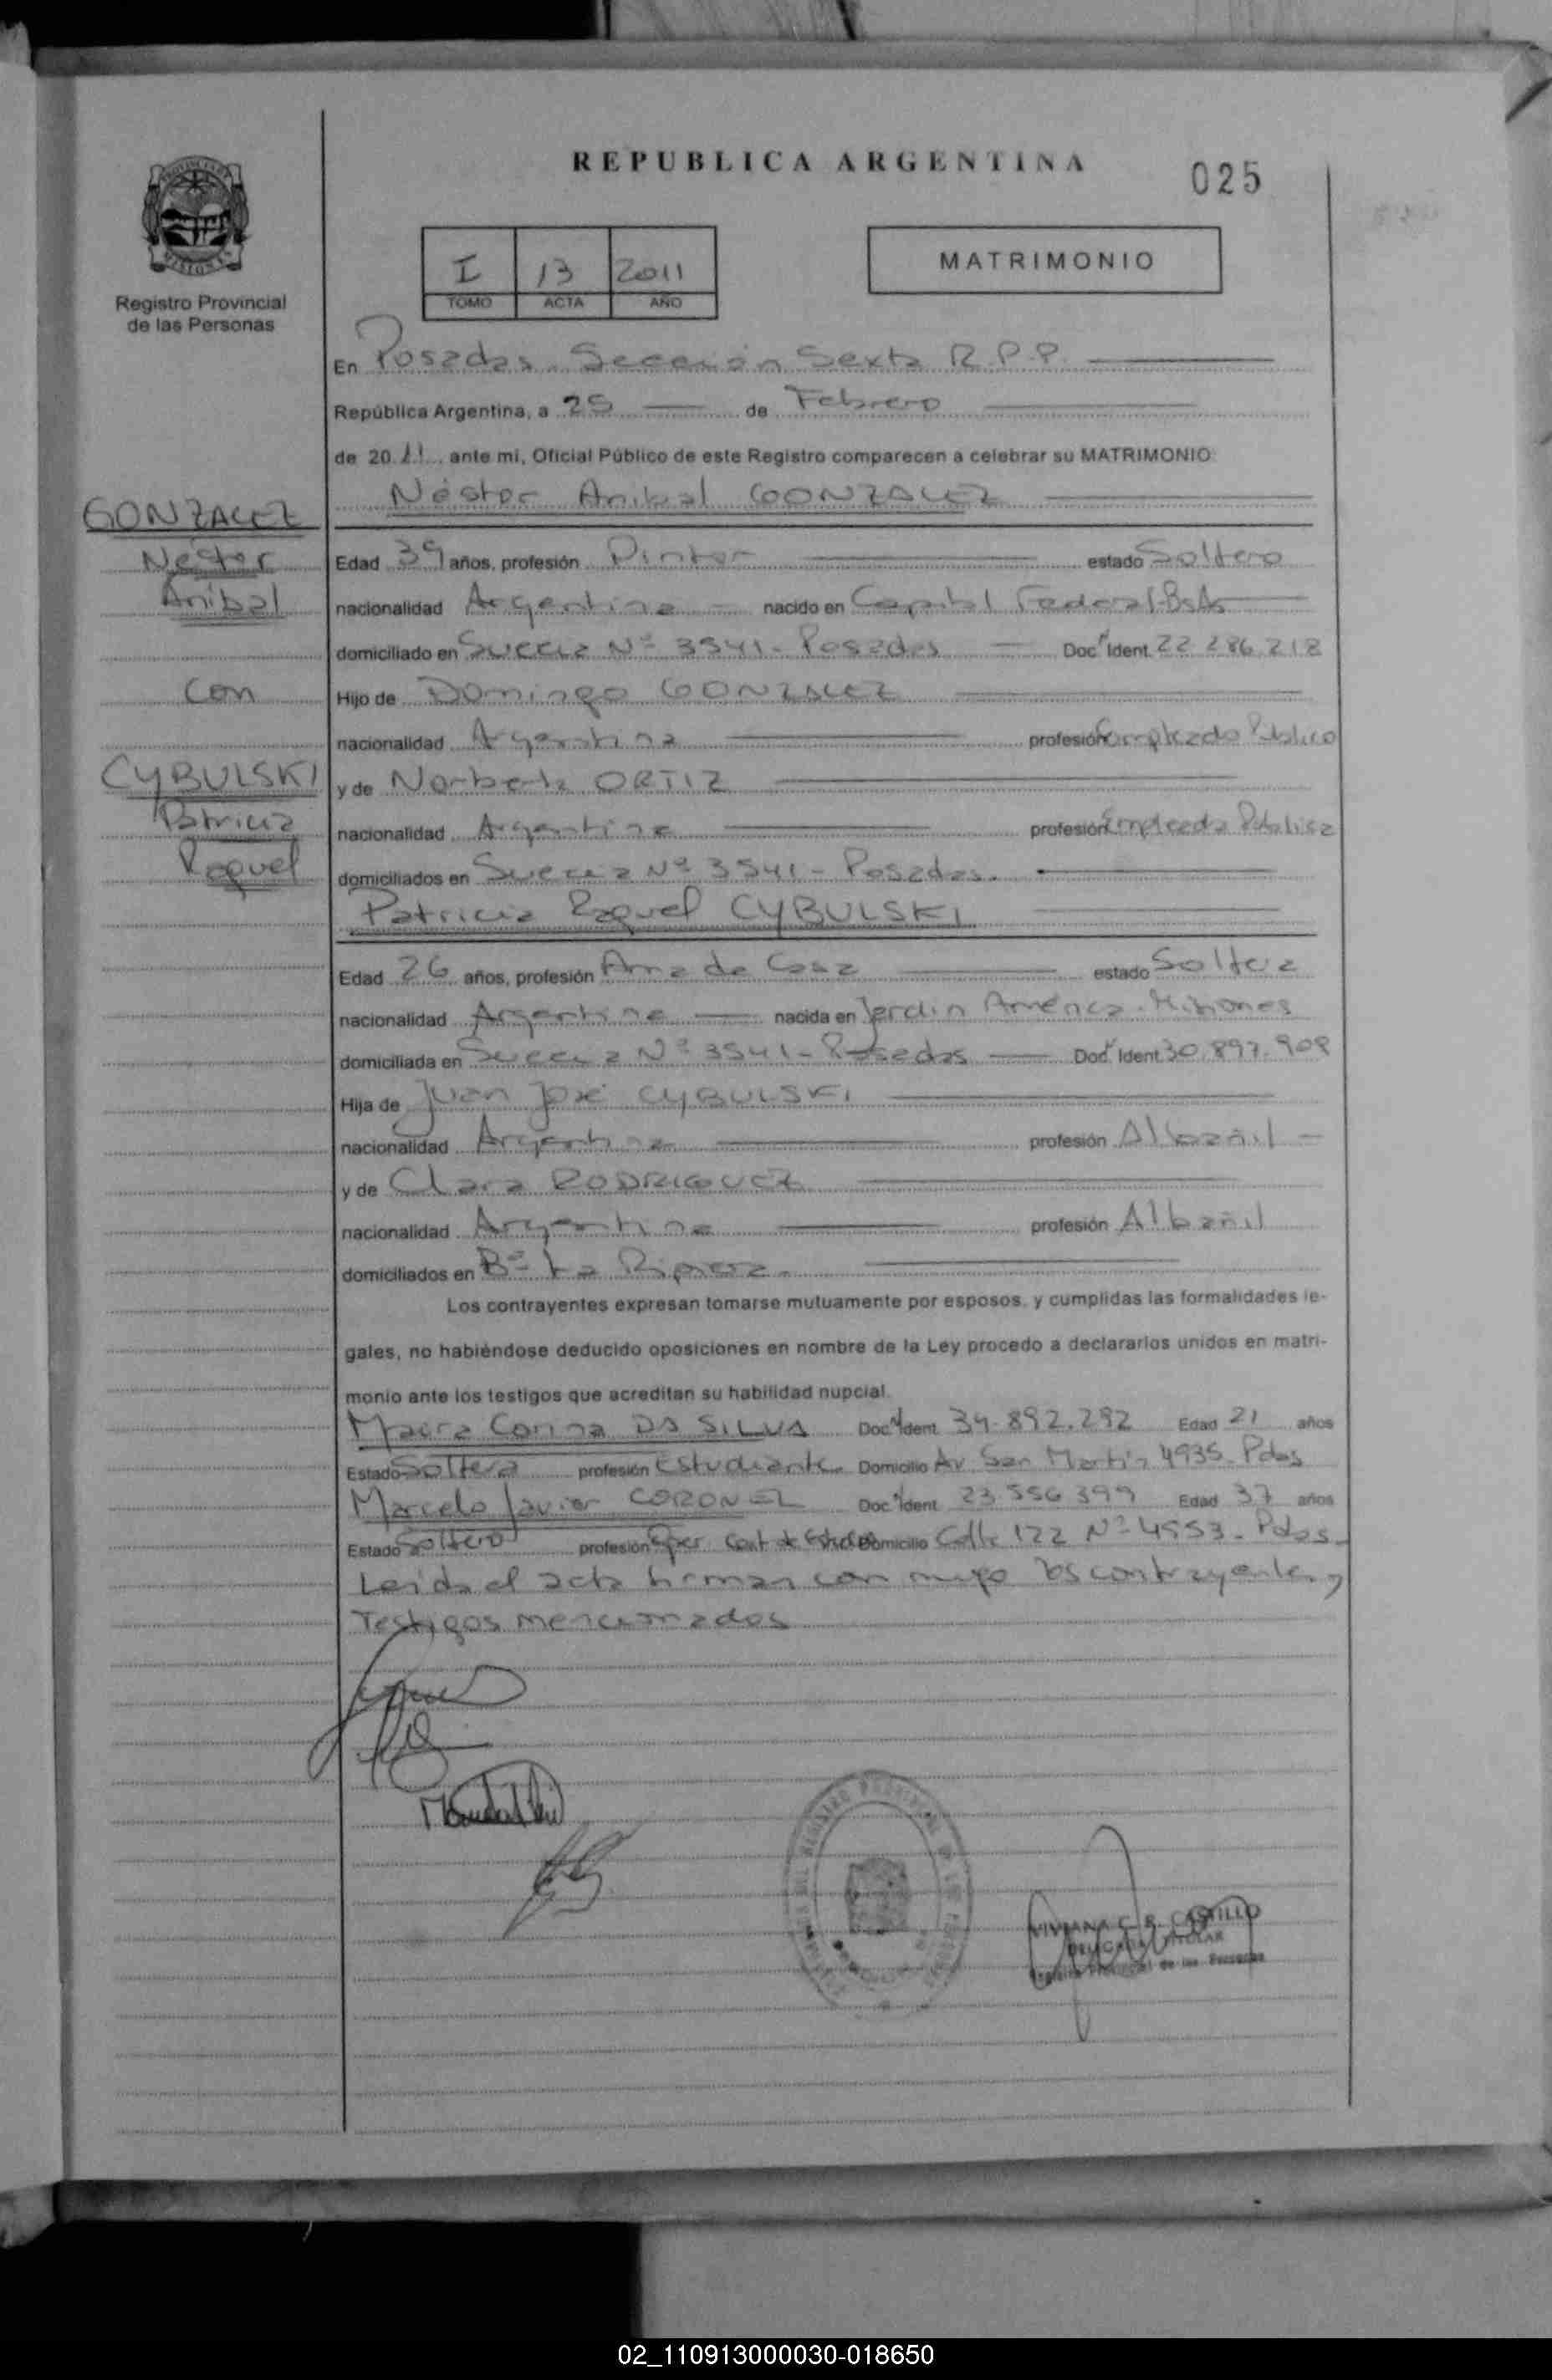 REPUBLICA ARGENTINA
025
Registro Provincial
de las Personas
I 13 2011
TOMO ACTA AÑO
MATRIMONIO
En Posadas. Sección Sexta R.P.P.
República Argentina, a 25 de Febrero
de 2011 ante mi, Oficial Público de este Registro comparecen a celebrar su MATRIMONIO
Néstor Anibal GONZALEZ
GONZALEZ
Néstor
Anibal
con
CYBULSKI
Patricia
Raquel
Edad 39 años, profesión Pintor estado Soltero
nacionalidad Argentina nacido en Capital Federal-BsAs
domiciliado en Suecia Nº 3541- Posadas Doc Ident. 22 286.218
Hijo de Domingo GONZALEZ
nacionalidad Argentina profesión Empleado Público
y de Norberta ORTIZ
nacionalidad Argentina profesión Empleada Publica
domiciliados en Suecia Nº 3541- Posadas.
Patricia Raquel CYBULSKI
Edad 26 años, profesión Ama de Casa estado Soltera
nacionalidad Argentina nacida en Jardin América. Misiones
domiciliada en Suecia Nº 3541- Posadas Doc Ident 30.897.908
Hija de Juan José CYBULSKI
nacionalidad Argentina profesión Albañil
y de Clara RODRIGUEZ
nacionalidad Argentina profesión Albañil
domiciliados en Bº La
Los contrayentes expresan tomarse mutuamente por esposos, y cumplidas las formalidades le-
gales, no habiéndose deducido oposiciones en nombre de la Ley procedo a declararlos unidos en matri-
monio ante los testigos que acreditan su habilidad nupcial.
Corina DA SILVA Doc Ident 34.892.292 Edad 21 años
Estado Soltera profesión Estudiante Domicilio Av San Martín 4935- Pdas
Marcelo Javier CORONEL Doc Ident 23.556 399 Edad 37 años
Estado Soltero profesión Domicilio Calle 122 Nº 4553- Pdas-
Leída el acta firman con migo los contrayentes y
Testigos mencionados
VIVIANA C. R. CASTILLO
DELEGADA TITULAR
Registro Provincial de las Personas
02_110913000030-018650